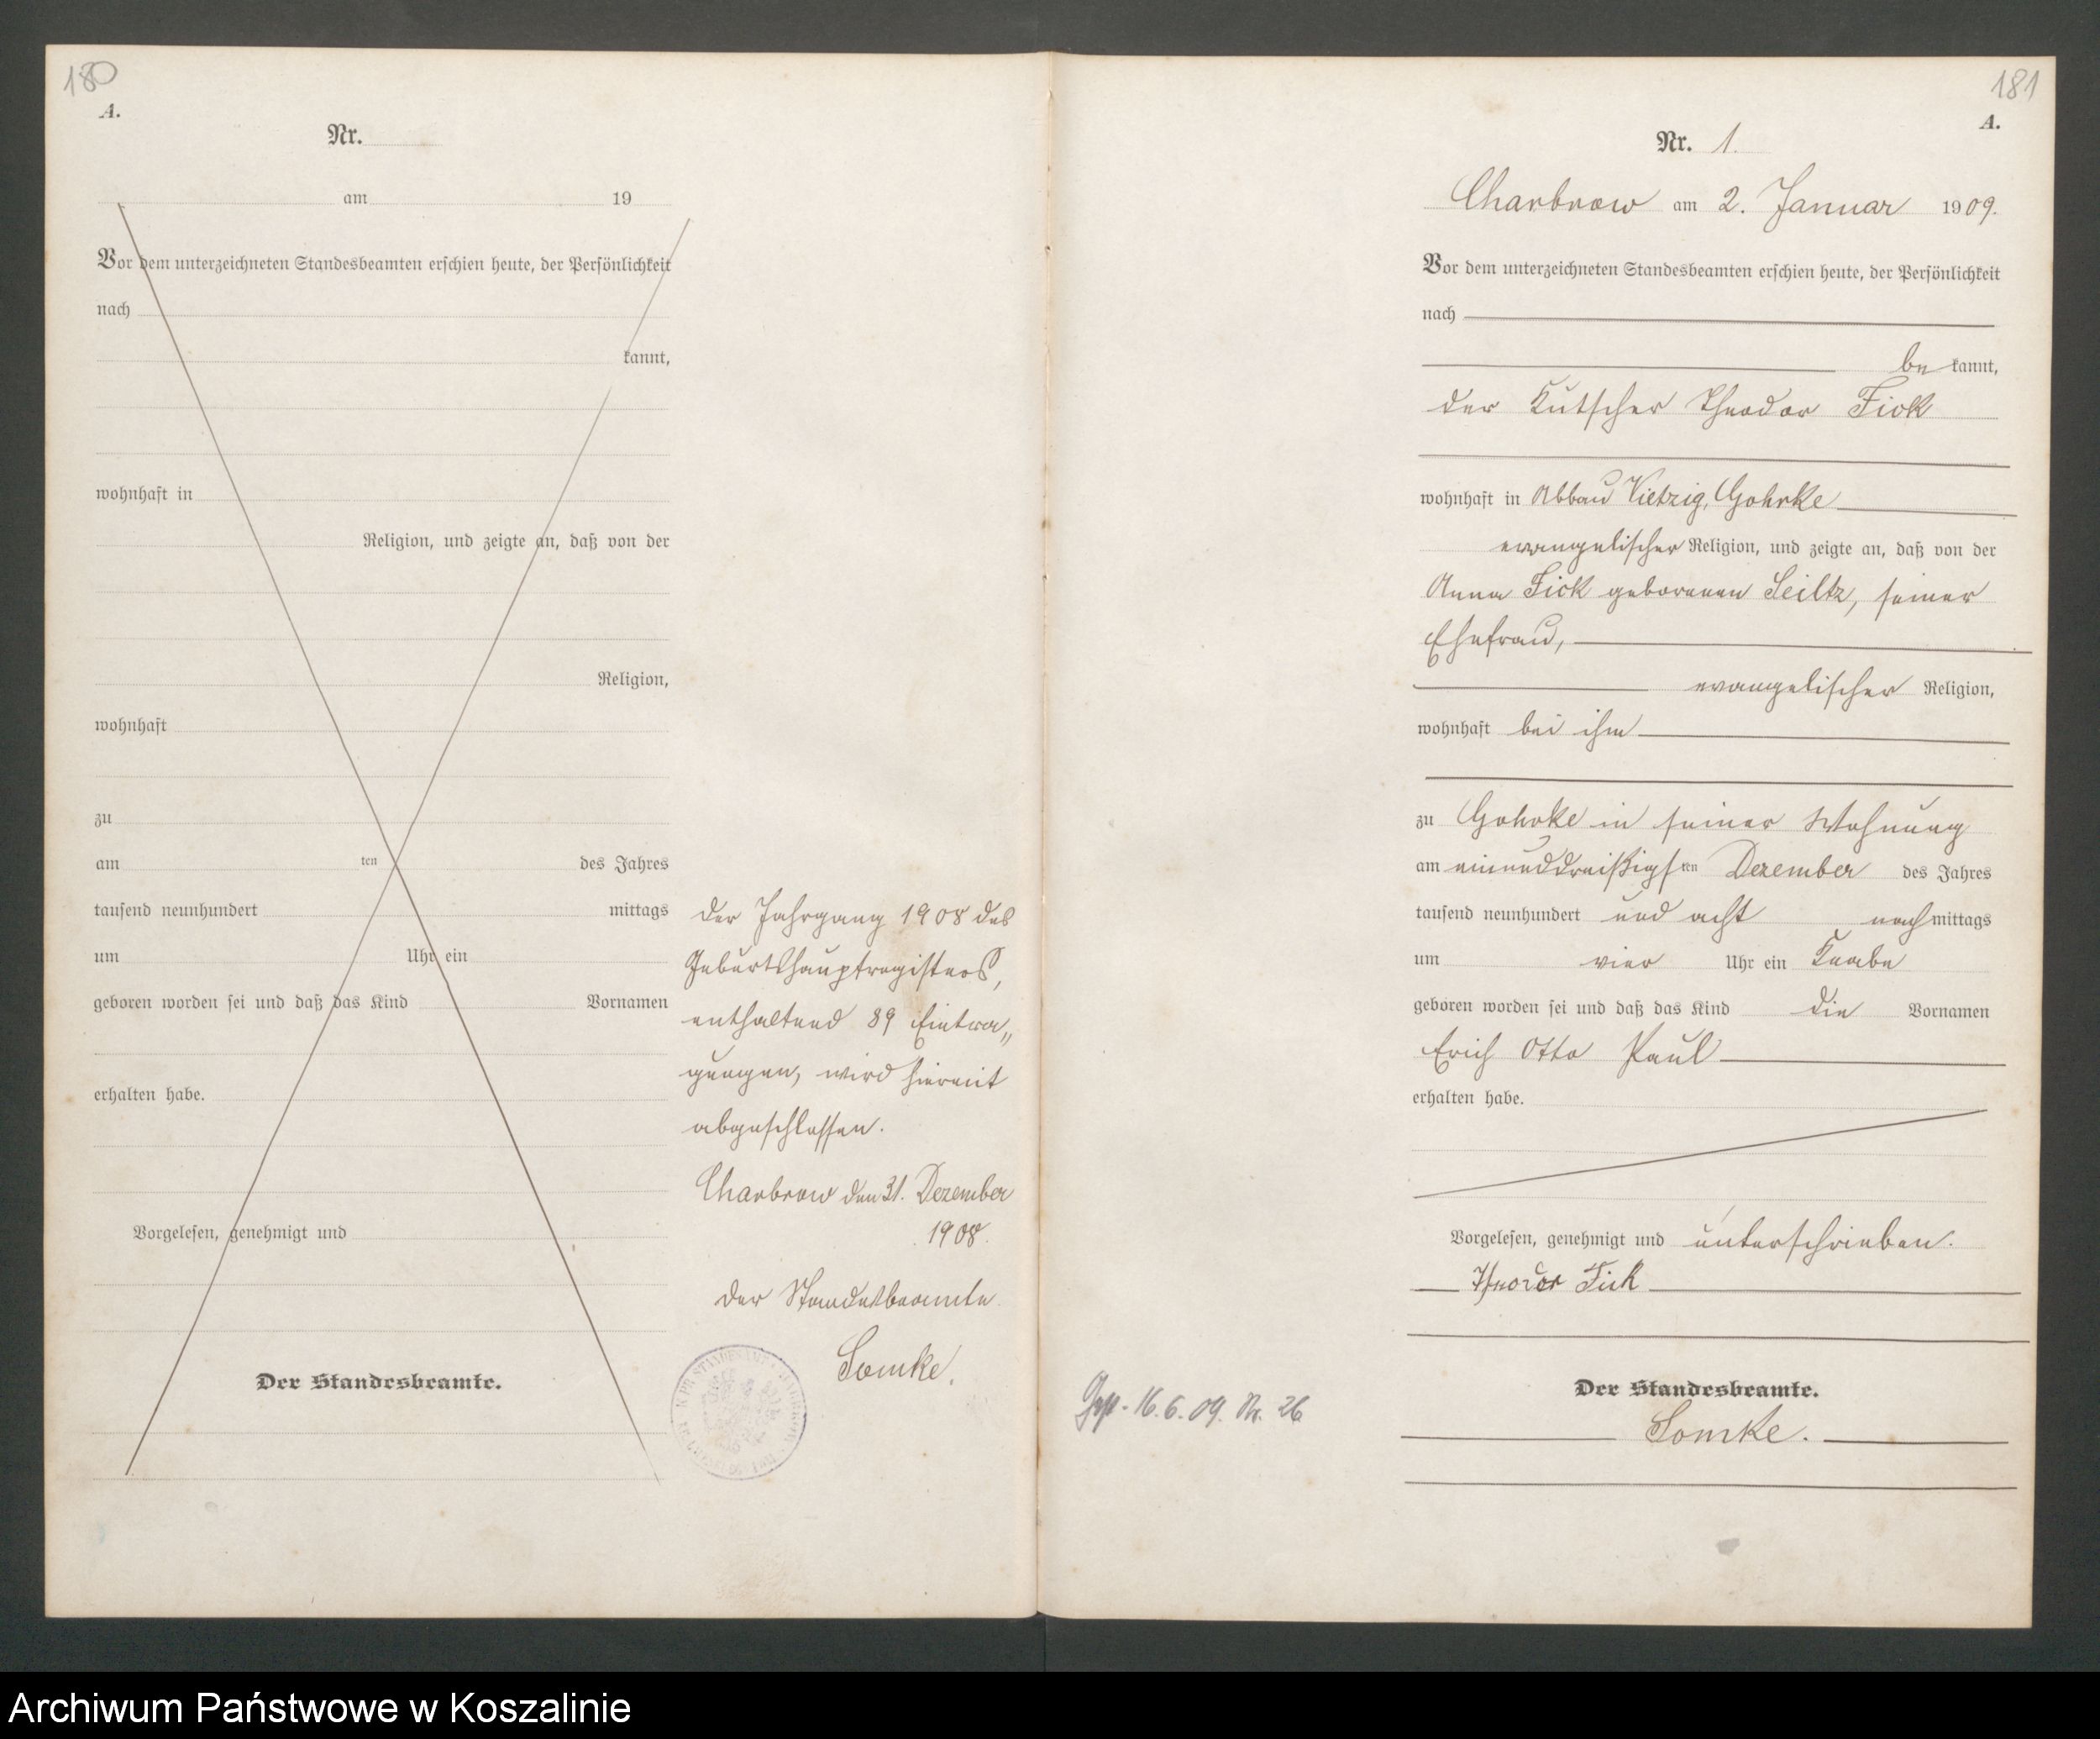 180
A.
Nr.
am 19
Vor dem unterzeichneten Standesbeamten erschien heute, der Persönlichkeit
nach
kannt,
wohnhaft in
Religion, und zeigte an, daß von der
Religion,
wohnhaft
zu
am ten des Jahres
tausend neunhundert mittags
um Uhr ein
geboren worden sei und daß das Kind Vornamen
erhalten habe.
Vorgelesen, genehmigt und
Der Standesbeamte.
Der Jahrgang 1908 des
Geburtshauptregisters,
enthaltend 89 Eintra„
gungen, wird hiermit
abgeschlossen.
Charbrow den 31. Dezember
1908.
Der Standesbeamte
Lomke.
181
A.
Nr. 1.
Charbrow am 2. Januar 1909.
Vor dem unterzeichneten Standesbeamten erschien heute, der Persönlichkeit
nach
be kannt,
der Kutscher Theodor Fick
wohnhaft in Abbau Vietzig, Gohrke
evangelischer Religion, und zeigte an, daß von der
Anna Fick geborenen Seiltz, seiner
Ehefrau,
evangelischer Religion,
wohnhaft bei ihm
zu Gohrke in seiner Wohnung
am einunddreißigsten Dezember des Jahres
tausend neunhundert und acht nachmittags
um vier Uhr ein Knabe
geboren worden sei und daß das Kind die Vornamen
Erich Otto Paul
erhalten habe.
Vorgelesen, genehmigt und unterschrieben.
Theodor Fick
Der Standesbeamte.
Lomke.
16.6.09. Nr. 26
Archiwum Państwowe w Koszalinie